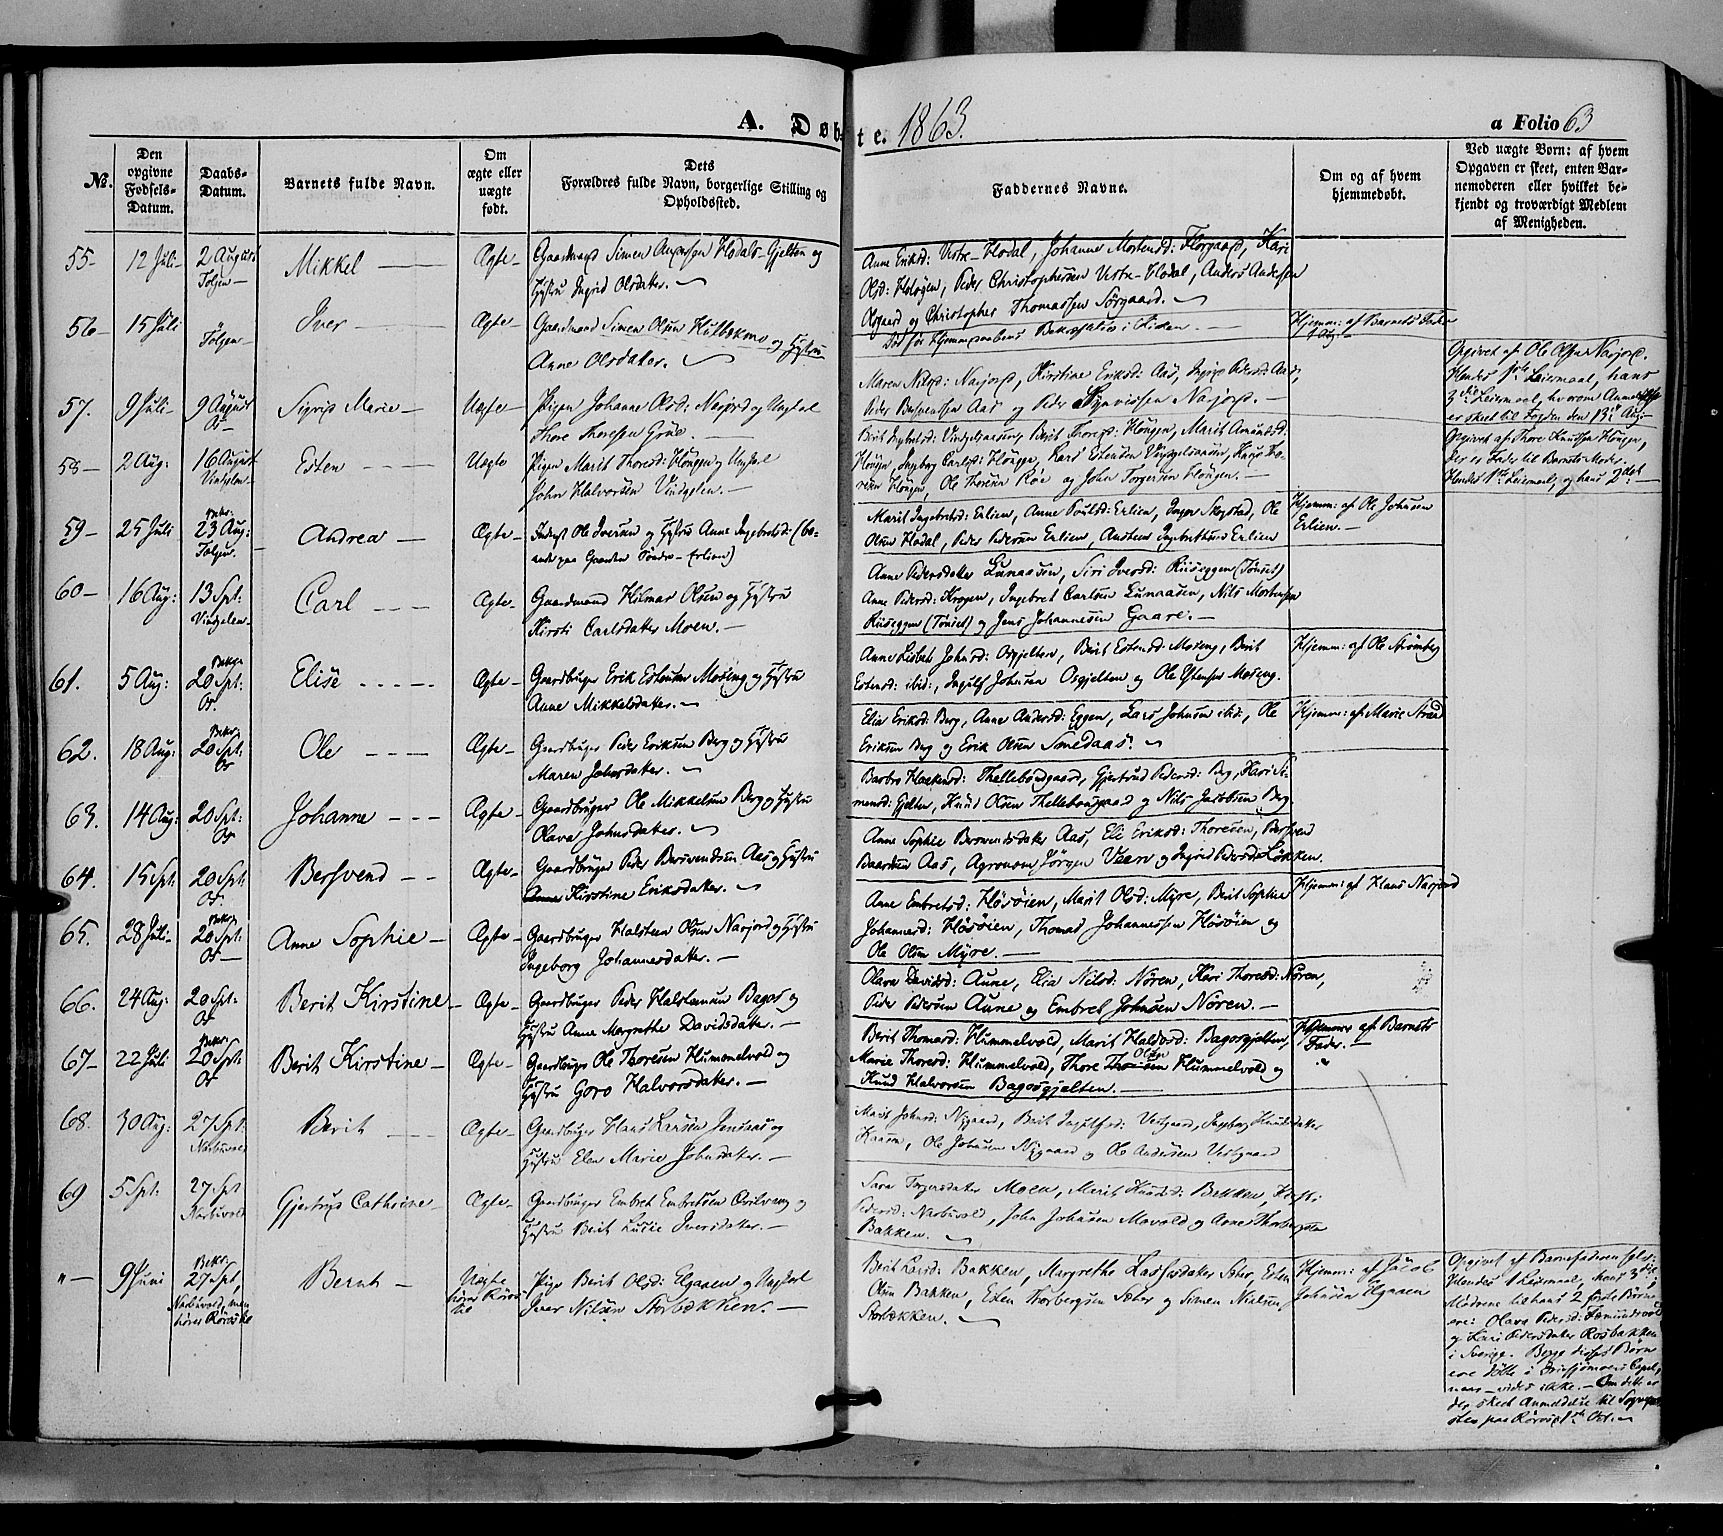 A. Døbte. 1863.
a Folio 63
No.
Den opgivne Fødsels-Datum.
Daabs-Datum.
Barnets fulde Navn.
Om ægte eller uægte født.
Dets Forældres fulde Navn, borgerlige Stilling og Opholdssted.
Faddernes Navne.
Om og af hvem hjemmedøbt.
Ved uægte Børn: af hvem Opgaven er skeet, enten Barnemoderen eller hvilket bekjendt og troværdigt Medlem af Menigheden.
55- 12 Juli- 2 August Tolgen- Mikkel Ægte-
Gaardmand Simen Andersen Hodals-Gjelten og
Hustru Ingrid Olsdater.
Anne Eriksd: Vestre-Hodal, Johanne Mortensd: Florgaard, Kari
Olsd: Holøyen, Peder Christophersen Vestre-Hodal, Anders Andersen
Olsgaard og Christopher Thomassen Sørgaard.
56- 15 Juli Tolgen Iver Ægte-
Gaardmand Simen Olsen Hulbekmo og Hustru
Anne Olsdater.
Død før Hjemmedaabens Bekræftelse i Kirken.
Hjemm: af Barnets Fader
57. 9 Juli- 9 August Os- Sigrid Marie- Uægte-
Pigen Johanne Olsd: Narjord og Ungkarl
Thore Thoresen Grue.
Maren Nilsd: Narjord, Kirstine Eriksd: Aas, Ingrid Pedersd: Aas,
Peder Aas og Peder Narjord.
Opgivet af Ole Olsen Narjord.
Hendes 1ste Leiermaal, hans
3die Leiermaal, hvorom Anmeldelse
er skeet til Fogden den 13de Aug:
58- 2 Aug: 16 August Vindgelen- Esten Uægte
Pigen Marit Thoresd: Houngen og Ungkarl
John Halvorsen Vindgelen.
Berit Ingebretsd: Berit Thoresd: Houngen, Marit Amundsd:
Houngen, Ingeborg Carlsd: Houngen, Lars Estensen
Houngen, Ole Thoresen Røe og John Torgersen Houngen.
Opgivet af: Thore Knudsen Houngen,
der er Fader til Barnets Moder.
Hendes 1ste Leiermaal, og hans 2det
59- 25 Juli Bekr: 23 Aug: Tolgen. Andrea Ægte-
Inderst Ole Iversen og Hustru Anne Ingebretsd: (bo-
ende paa Gaarden Søndre-Erlien)
Marit Ingebretsd: Erlien, Anne Poulsd: Erlien, Inger Skogstad, Ole
Olsen Hodal, Peder Pedersen Erlien, Austen Ingebretsen Erlien
Hjemm: af Ole Johnsen
Erlien.
60- 16 Aug: 13 Spt: Vindgelen- Carl Ægte-
Gaardmand Hilmar Olsen og Hustru
Kirsti Carlsdater Moen.
Anne Pedersdater Lunaasen, Siri Iversd: Riiseggen (Tønset)
Anne Pedersd: Krogen, Ingebret Carlsen Lunaasen, Nils Mortensen
Riiseggen (Tønset) og Jens Johannesen Gaare.
61. 5 Aug: Bekr 20 Spt: Os Elise Ægte-
Gaardbruger Erik Estensen Moseng og Hustru
Anne Mikkelsdater.
Anne Lisbet Johnsd: Osgjelten, Berit Estensd: Moseng, Berit
Estensd: ibid:, Ingulf Johnsen Osgjelten og Ole Estensen Moseng.
Hjemm: af Ole Strømbeg
62. 18 Aug: Bekr 20 Spt: Os Ole Ægte-
Gaardbruger Peder Eriksen Berg og Hustru
Maren Johnsdater.
Elie Eriksd: Berg, Anne Andersd: Eggen, Lars Johnsen ibid:, Ole
Eriksen Berg og Erik Olsen Smedaas.
Hjemm: af Marie Strand
63. 14 Aug: 20 Spt: Os Johanne Ægte-
Gaardbruger Ole Mikkelsen Berg og Hustru
Olava Johnsdater.
Barbro Haakensd: Thellebondgaard, Gjertrud Pedersd: Berg, Kari Si-
mensd: Gjelten, Knud Olsen Thellebongaard og Nils Jacobsen Berg
64. 15 Spt: 20 Spt Os Bersvend Ægte-
Gaardbruger Peder Bersvendsen Aas og Hustru
Kirstine Eriksdater.
Anne Sophie Bersvendsdater Aas, Eli Eriksd: Thoresen, Bersvend
Baardsen Aas, Agronom Jørgen Veen og Ingrid Pedersd: Løkken.
65. 28 Juli- Bekr 20 Spt: Os Anne Sophie Ægte-
Gaardbruger Halsteen Olsen Narjord og Hustru
Ingeborg Johannesdater.
Anne Embretsd: Høsøien, Marit Olsd: Myre, Berit Sophie
Johannesd: Høsøien, Thomas Johannessen Høsøien og
Ole Olsen Myre.
Hjemm: af Hans Narjord
66. 24 Aug: 20 Spt: Os Berit Kirstine Ægte-
Gaardbruger Peder Halstensen Bagos og
Hustru Anne Margrethe Davidsdater.
Olava Davidsd: Aune, Elia Nilsd: Nøren, Kari Thoresd: Nøren,
Peder Pedersen Aune og Embret Johnsen Nøren.
67- 22 Juli Bekr 20 Spt: Os Berit Kirstine Ægte-
Gaardbruger Ole Thoresen Hummelvold og
Hustru Goro Halvorsdater.
Berit Thomasd: Hummelvold, Marit Halvorsd: Bagosgjelten,
Marie Thoresd: Hummelvold, Thore Olsen Hummelvold og
Knud Halvorsen Bagosgjelten.
Hjemme af Barnets
Fader.
68. 30 Aug: 27 Spt: Narbuvold Berit Ægte-
Gaardbruger Hans Larsen Jensaas og
Hustru Elen Marie Johnsdater.
Marit Johnsd: Nygaard, Berit Ingulfsd: Vestgaard, Ingeborg Knudsdater
Kaasen, Ole Johnsen Nygaard og Ole Andersen Vestgaard
69 5 Spt: 27 Spt Narbuvold Gjertrud Cathrine Ægte-
Gaardbruger Embret Embretsen Qvilvang og
Hustru Berit Lucie Iversdater.
Sara Torgersdater Moen, Marit Knudsd: Bekken, Kirsti
Pedersd: Narbuvold, John Johnsen Movold og Arne Thorbergsen
Bakken.
"- 9 Juni Bekr: 27 Spt, Narbuvold, men hører Røros til Bernt Uægte hører Røros til
Pige Berit Olsd: Elgaaen og Ungkarl
Iver Nilsen Storbækken.
Berit Larsd: Bakken, Margrethe Lassesdater Sæter, Esten
Olsen Bakken, Esten Thorbergsen Sæter og Simen Nielsen
Storbækken.
Hjemm: af Jacob
Johnsen Elgaaen
Opgivet af Barnefaderen selv.
Hendes 1 Leiermaal, hans 3die;
Mødrene til hans 2 første Børn
ere: Olava Pedersd: Fæmundsvold
og Kari Pedersdater Rosbakken
i Sverige. Begge disses Børn
ere døbte i Capel,
naar vides ikke. Om dette er
der skeet Anmeldelse til Sogne-
sten paa Røros 1ste Oct.